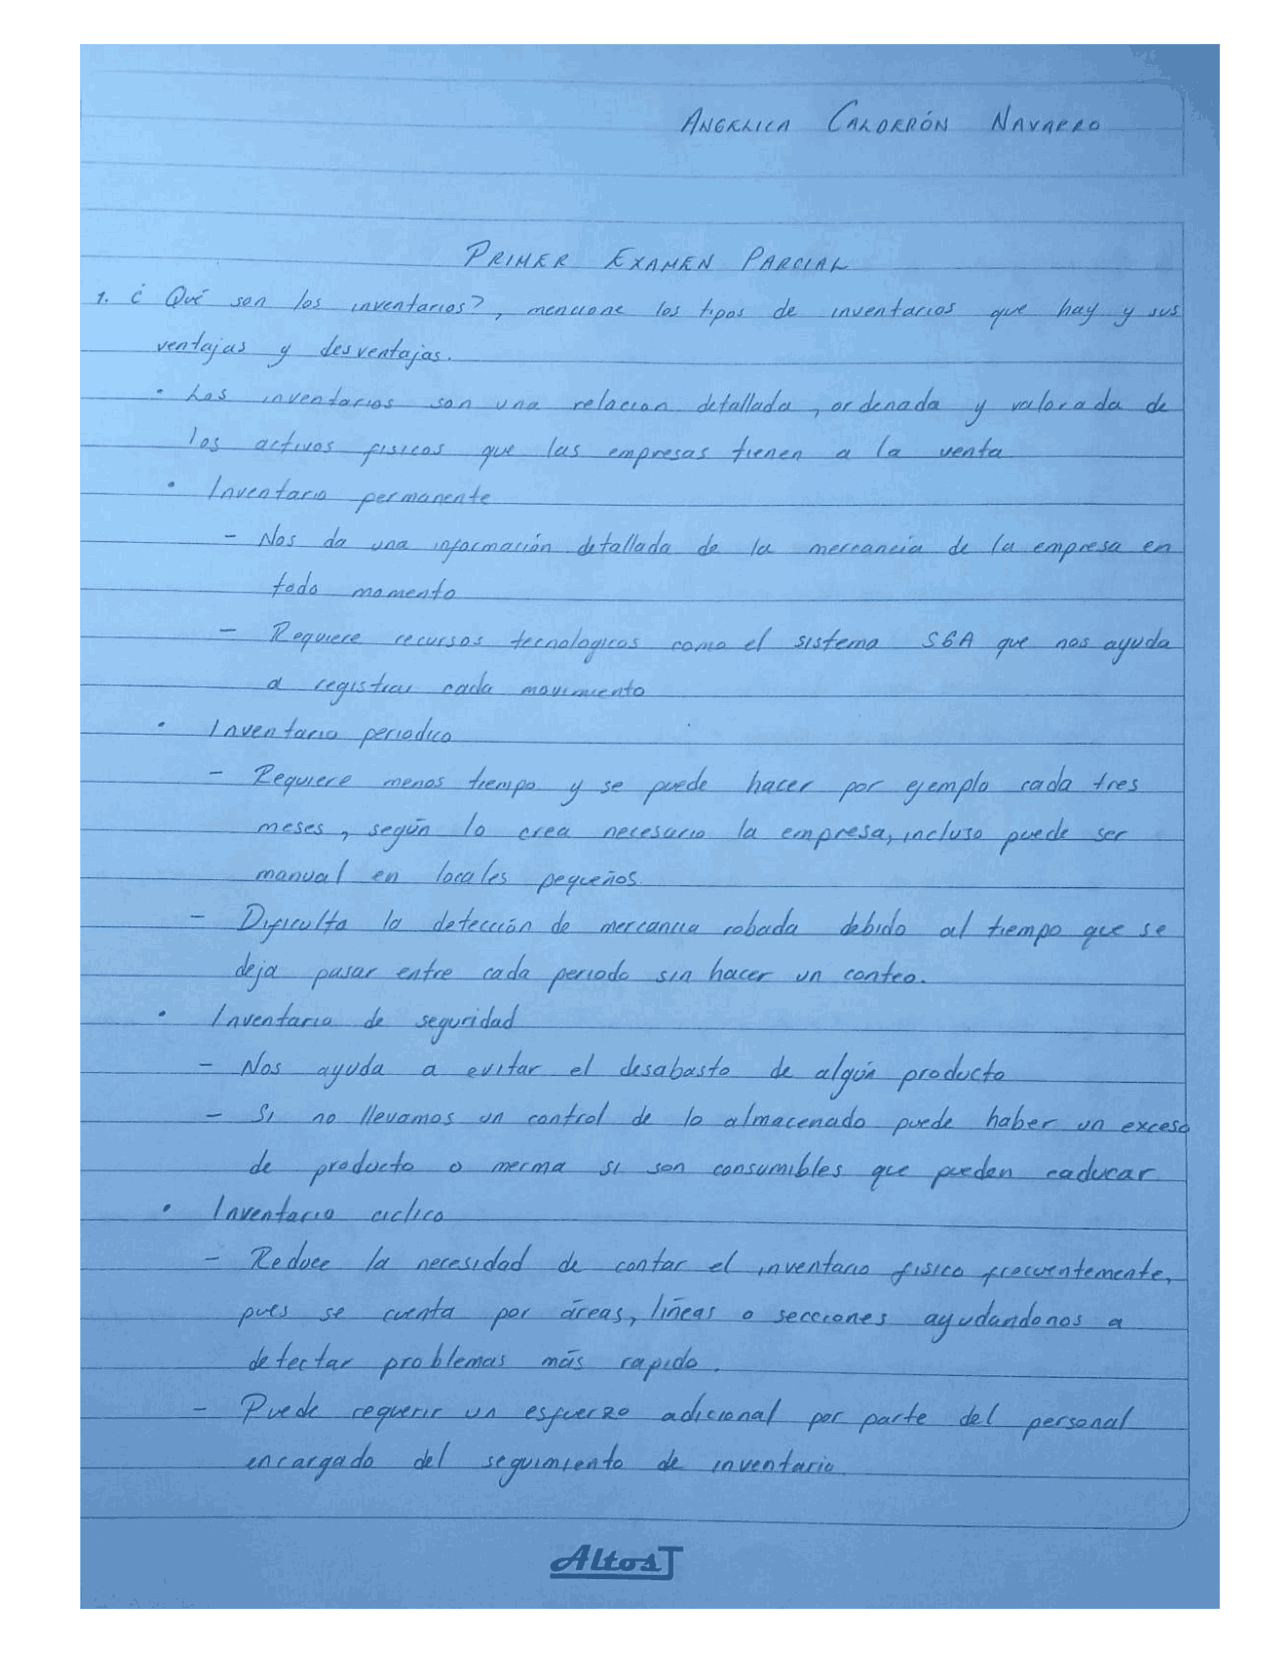 ANGELICA CALDERÓN NAVARRO
PRIMER EXAMEN PARCIAL
1. ¿Qué son los inventarios?, mencione los tipos de inventarios que hay y sus
ventajas y desventajas.
• Los inventarios son una relacion detallada, ordenada y valorada de
los activos fisicos que las empresas tienen a la venta
• Inventario permanente
- Nos da una información detallada de la mercancia de la empresa en
todo momento
- Requiere recursos tecnologicos como el sistema SGA que nos ayuda
a registrar cada movimiento
• Inventario periodico
- Requiere menos tiempo y se puede hacer por ejemplo cada tres
meses, según lo crea necesario la empresa, incluso puede ser
manual en locales pequeños
- Dificulta la detección de mercancia robada debido al tiempo que se
deja pasar entre cada periodo sin hacer un conteo.
• Inventario de seguridad
- Nos ayuda a evitar el desabasto de algún producto
- Si no llevamos un control de lo almacenado puede haber un exceso
de producto o merma si son consumibles que pueden caducar
• Inventario ciclico
- Reduce la necesidad de contar el inventario fisico frecuentemente,
pues se cuenta por áreas, líneas o secciones ayudandonos a
detectar problemas más rapido.
- Puede requerir un esfuerzo adicional por parte del personal
encargado del seguimiento de inventario.
AltosJ